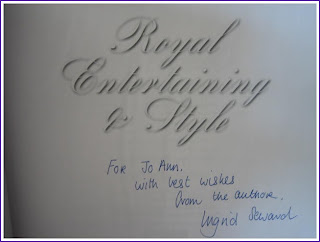 Royal
Entertaining
& Style
For Jo Ann.
with best wishes
from the author.
Ingrid Seward